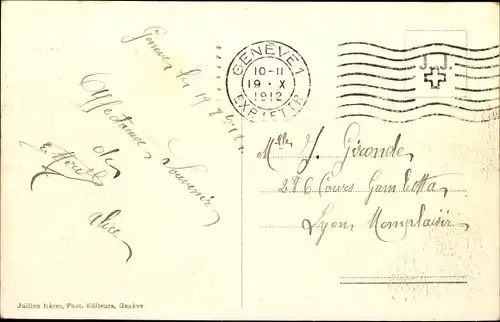 Genève le 19
GENÈVE 1
10-11
19 X
1912
EXP. LETTR.
Affectueux
Souvenir
de
Alice
Mlle J. Gironde
286 Cours Gambetta
Lyon Monplaisir
Jullien frères, Phot. Editeurs, Genève